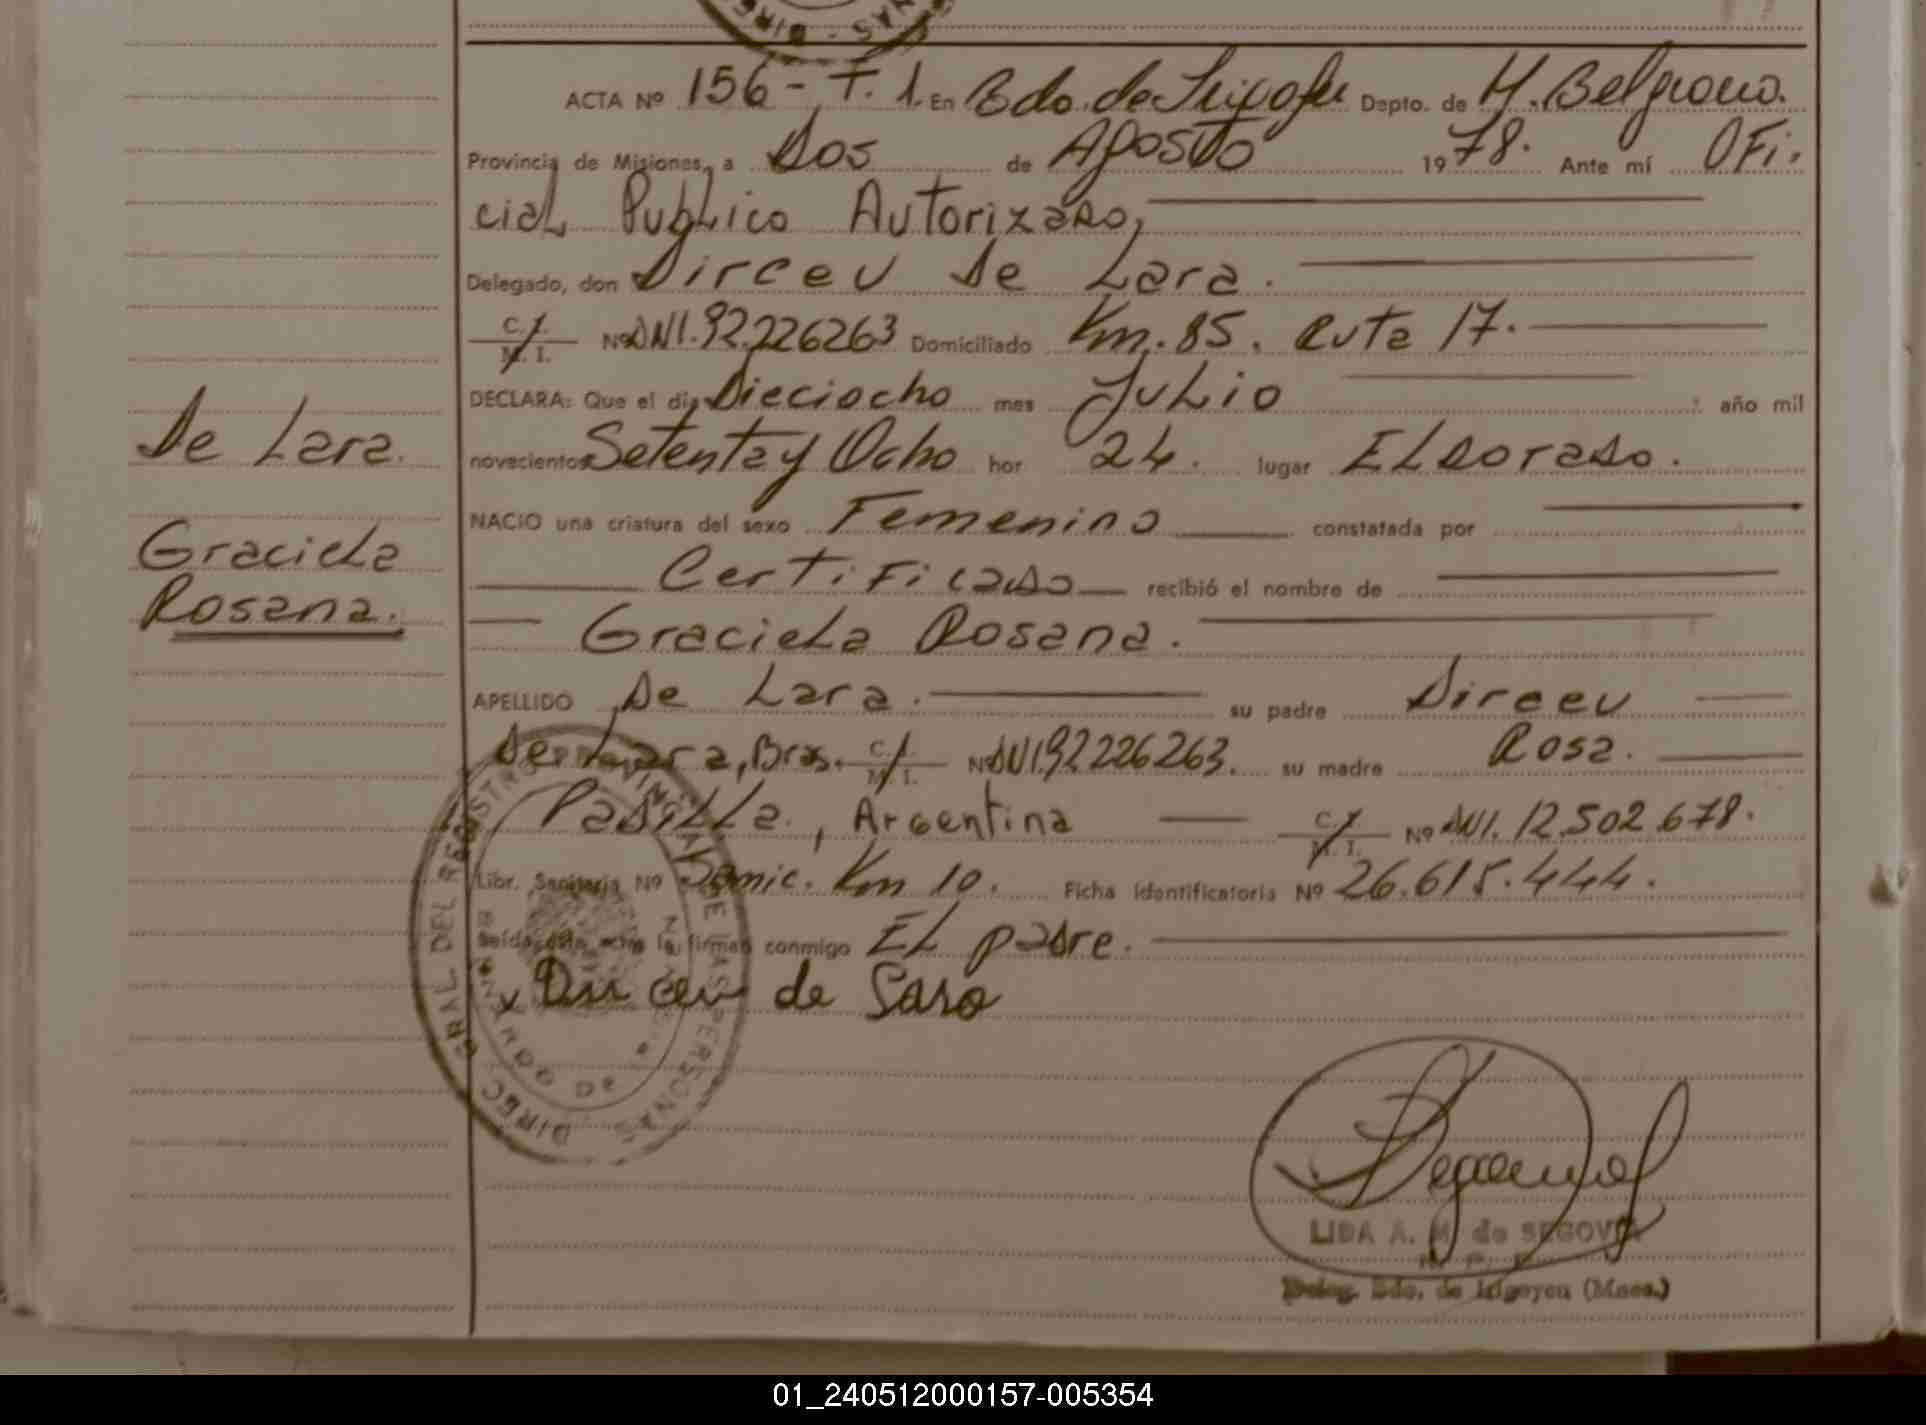 ACTA Nº 156 - T. 1. En Bdo. de Irigoyen Depto. de M. Belgrano.
Provincia de Misiones, a Dos de Agosto 1978. Ante mí OFi.
cial Publico Autorizado,
Delegado, don Dirceu De Lara.
C. I. M. I. Nº DNI. 92.226263 Domiciliado Km. 85. Ruta 17.
DECLARA: Que el día Dieciocho mes Julio año mil
De Lara.
novecientos Setenta y Ocho hor 24. lugar ELDorado.
NACIO una criatura del sexo Femenino constatada por
Graciela
Certificado recibió el nombre de
Rosana.
Graciela Rosana.
APELLIDO De Lara. su padre Dirceu
De Lara, Bras. C. I. M. I. Nº DNI 92226263. su madre Rosa.
Padilla, Argentina C. I. M. I. Nº DNI. 12.502.678.
Libr. Sanitaria Nº Domic. Km 10. Ficha Identificatoria Nº 26.615.444.
Leída esta acta la firman conmigo EL padre.
x Dirceu de Lara
DIREC. GRAL DEL REGISTRO PROVINCIAL DE LAS PERSONAS
LIDA A. M. de SEGOVIA
Deleg. Bdo. de Irigoyen (Mnes.)
01_240512000157-005354